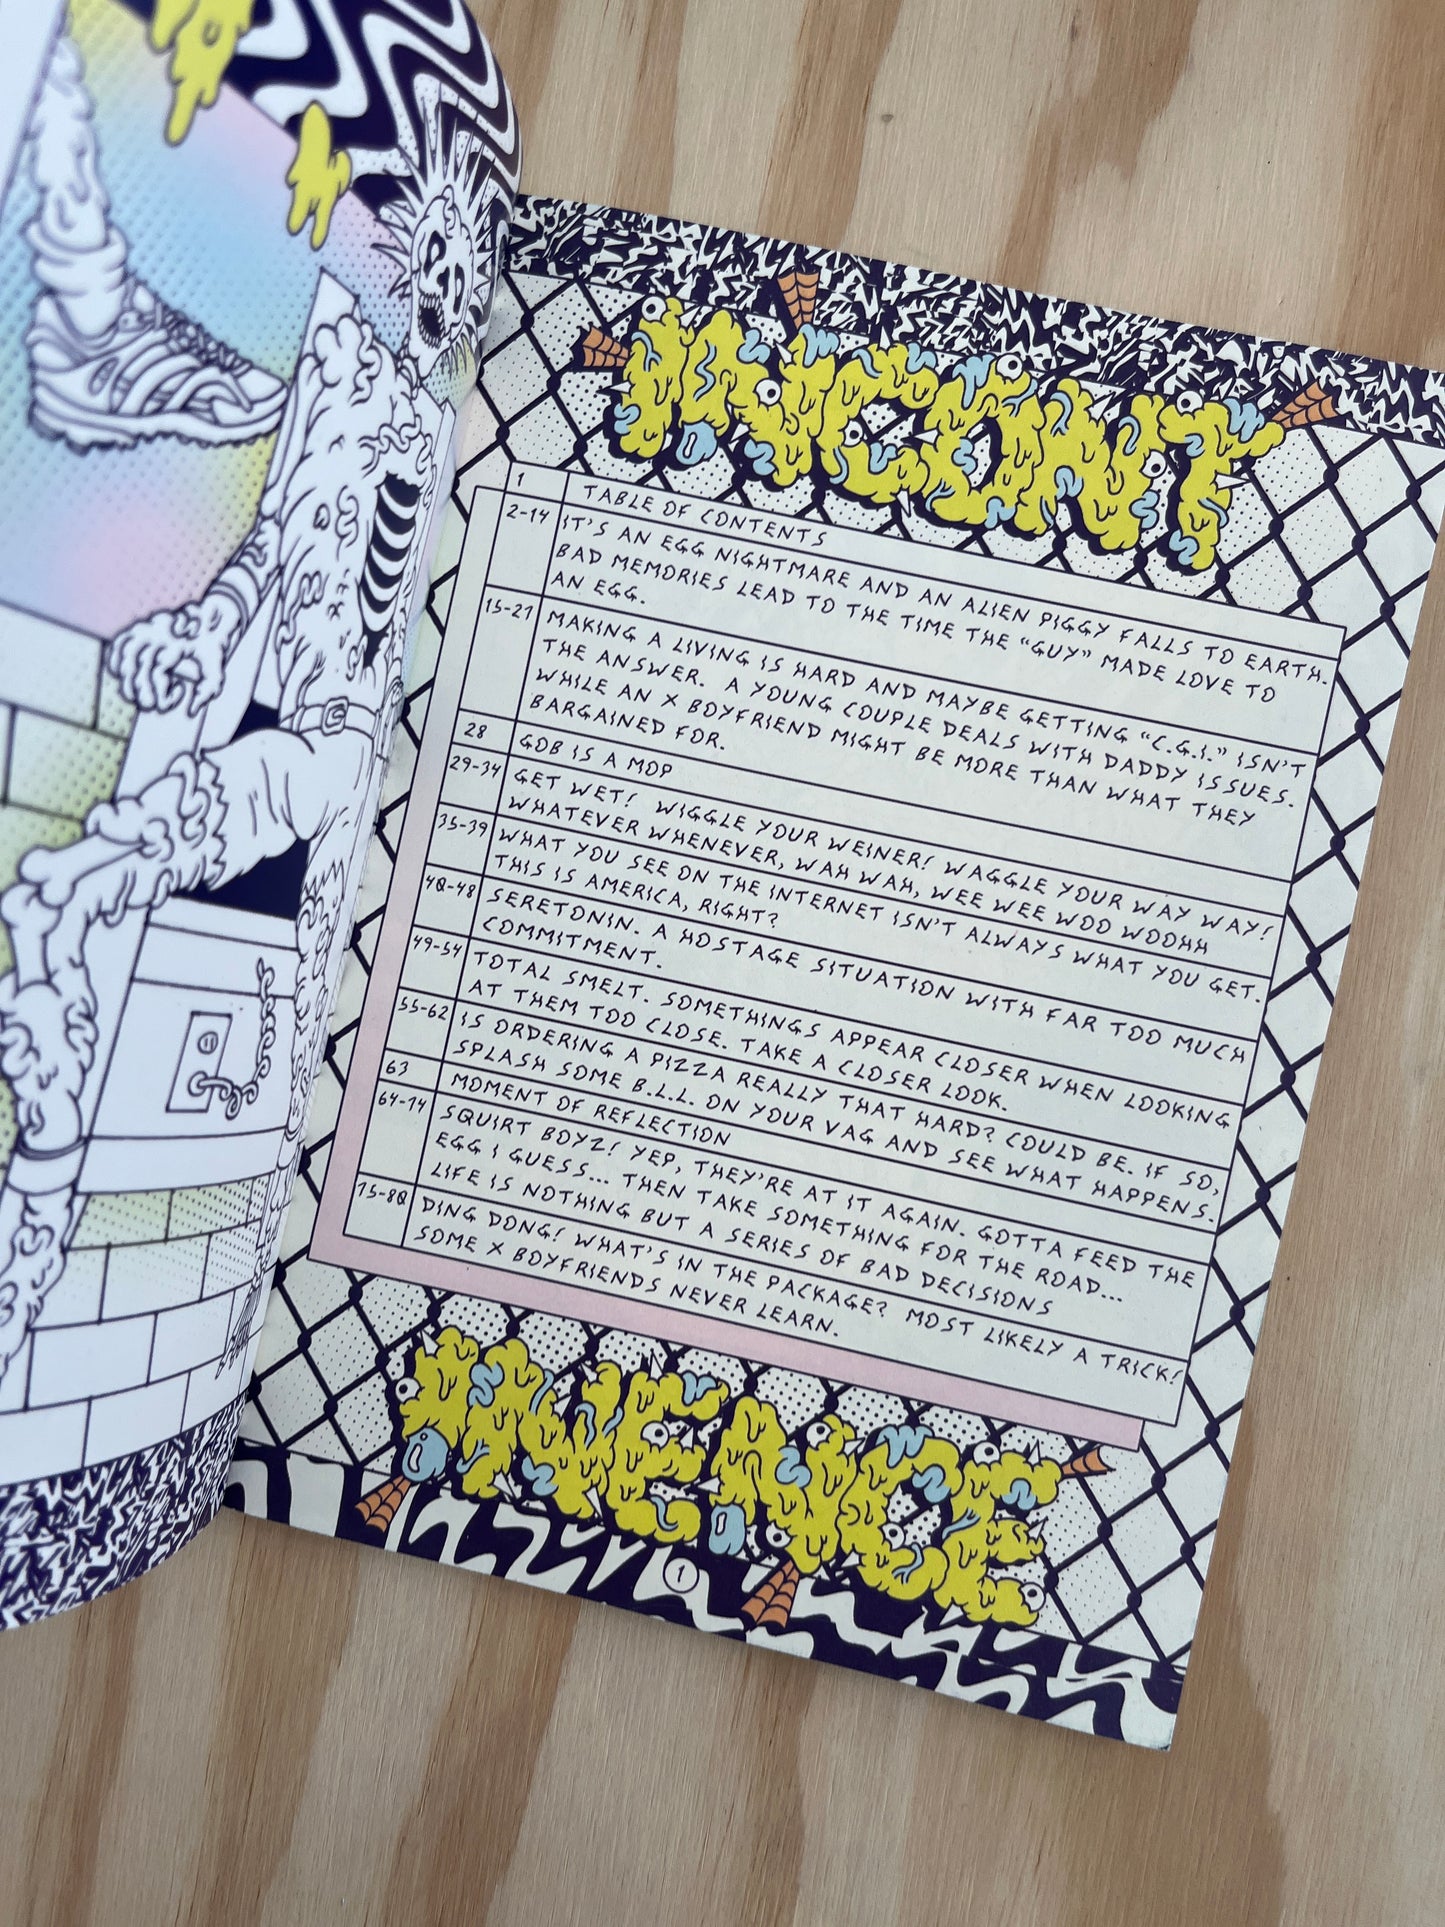 INCONT
1 TABLE OF CONTENTS
2-14 IT'S AN EGG NIGHTMARE AND AN ALIEN PIGGY FALLS TO EARTH.
BAD MEMORIES LEAD TO THE TIME THE "GUY" MADE LOVE TO
AN EGG.
15-27 MAKING A LIVING IS HARD AND MAYBE GETTING "C.G.I." ISN'T
THE ANSWER. A YOUNG COUPLE DEALS WITH DADDY ISSUES.
WHILE AN X BOYFRIEND MIGHT BE MORE THAN WHAT THEY
BARGAINED FOR.
28 GOB IS A MOP
29-34 GET WET! WIGGLE YOUR WEINER! WAGGLE YOUR WAY WAY!
WHATEVER WHENEVER, WAH WAH, WEE WEE WOO WOOHH
35-39 WHAT YOU SEE ON THE INTERNET ISN'T ALWAYS WHAT YOU GET.
THIS IS AMERICA, RIGHT?
40-48 SERETONIN. A HOSTAGE SITUATION WITH FAR TOO MUCH
COMMITMENT.
49-54 TOTAL SMELT. SOMETHINGS APPEAR CLOSER WHEN LOOKING
AT THEM TOO CLOSE. TAKE A CLOSER LOOK.
55-62 IS ORDERING A PIZZA REALLY THAT HARD? COULD BE. IF SO,
SPLASH SOME B.L.L. ON YOUR VAG AND SEE WHAT HAPPENS.
63 MOMENT OF REFLECTION
64-74 SQUIRT BOYZ! YEP, THEY'RE AT IT AGAIN. GOTTA FEED THE
EGG I GUESS... THEN TAKE SOMETHING FOR THE ROAD...
LIFE IS NOTHING BUT A SERIES OF BAD DECISIONS
75-80 DING DONG! WHAT'S IN THE PACKAGE? MOST LIKELY A TRICK!
SOME X BOYFRIENDS NEVER LEARN.
INENCE
1